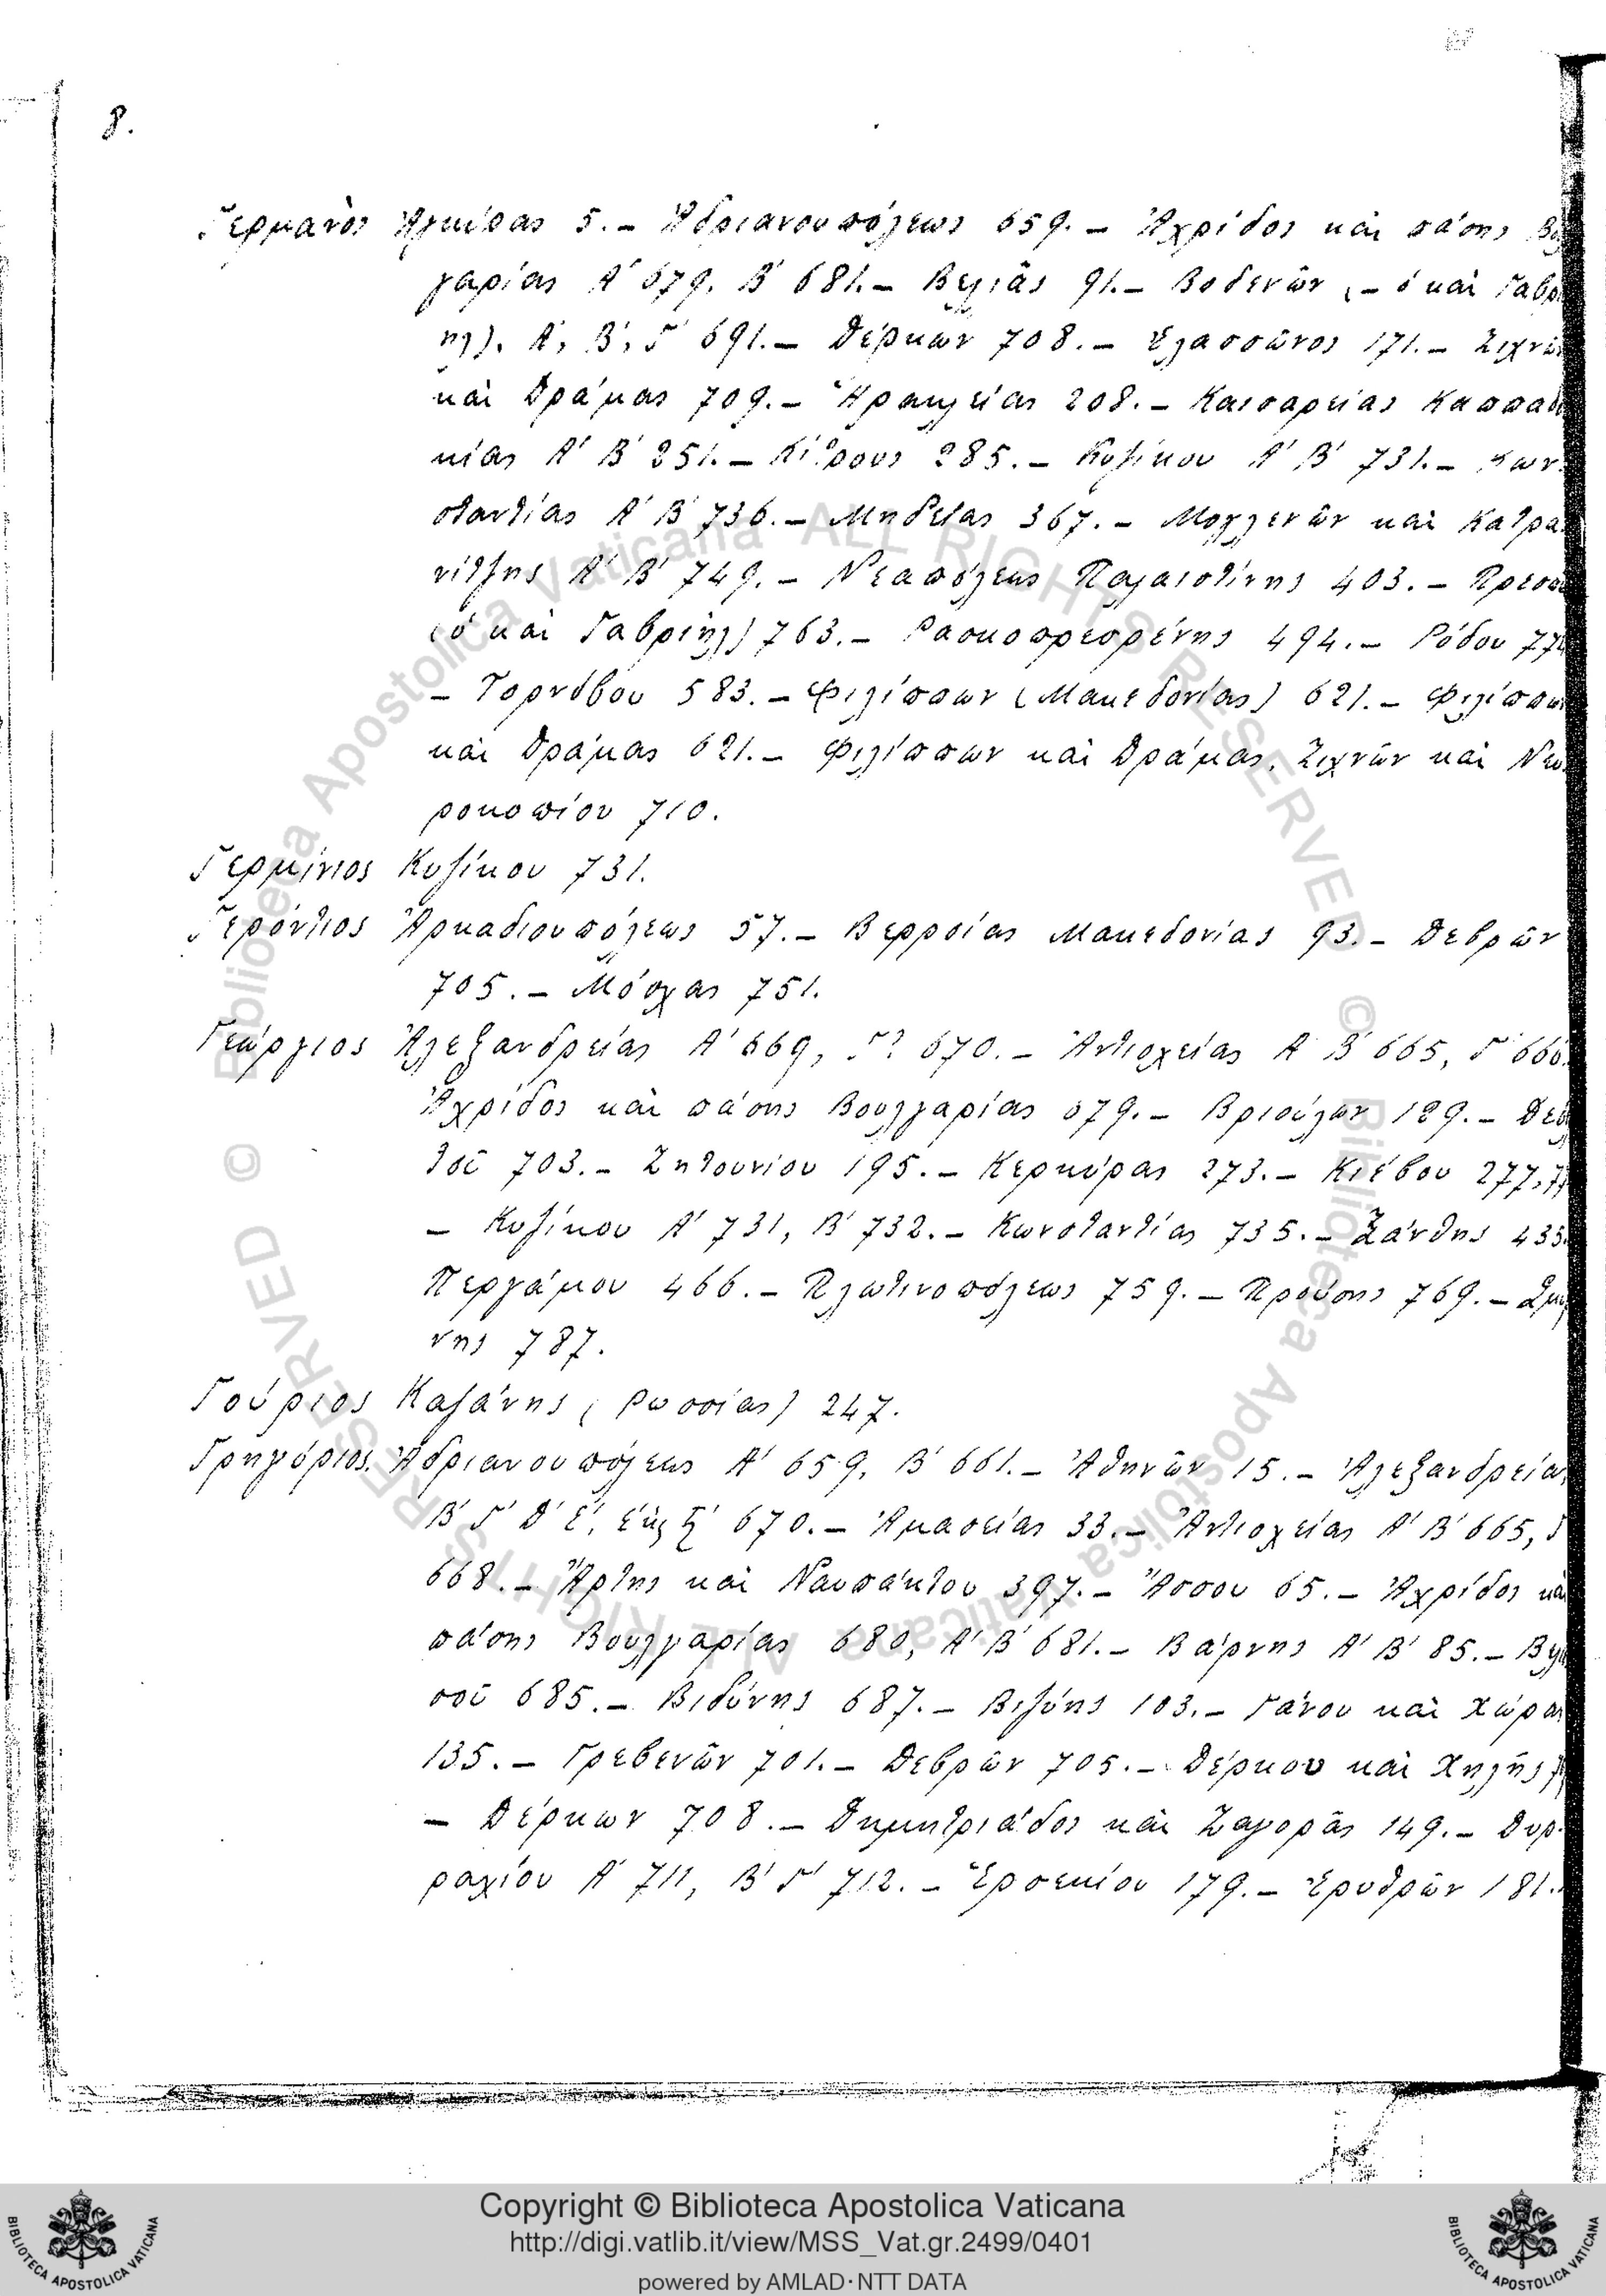 8.
Γερμανὸς Ἀγκύρας 5. – Ἀδριανουπόλεως 659. – Ἀχρίδος καὶ πάσης
γαρίας Α΄ 679, Β΄ 681. – Βελιᾶς 91. – Βοδενῶν (– ὁ καὶ Γαβρ
ηλ), Α΄, Β΄, Γ΄ 691. – Δέρκων 708. – Ἐλασσῶνος 171. – Ζιχνῶν
καὶ Δράμας 709. – Ἡρακλείας 208. – Καισαρείας Καππαδ
κίας Α΄ Β΄ 251. – Κίτρους 285. – Κυζίκου Α΄ Β΄ 731. – Κων
σταντίας Α΄ Β΄ 736. – Μηδείας 367. – Μογλενῶν καὶ Κατρα
νίτζης Α΄ Β΄ 749. – Νεαπόλεως Παλαιστίνης 403. – Πρεσπ
(ὁ καὶ Γαβριὴλ) 763. – Ρασκοπρεσρένης 494. – Ρόδου
– Τορνόβου 583. – Φιλίππων (Μακεδονίας) 621. – Φιλίππων
καὶ Δράμας 621. – Φιλίππων καὶ Δράμας, Ζιχνῶν καὶ Νευ
ροκοπίου 710.
Γερμίνιος Κυζίκου 731.
Γερόντιος Ἀρκαδιουπόλεως 57. – Βερροίας Μακεδονίας 93. – Δεβρῶν
705. – Μόσχας 751.
Γεώργιος Ἀλεξανδρείας Α΄ 669, Γ΄? 670. – Ἀντιοχείας Α΄ Β΄ 665, Γ΄ 666.
Ἀχρίδος καὶ πάσης Βουλγαρίας 679. – Βριούλων 129. –
τοῦ 703. – Ζητουνίου 195. – Κερκύρας 273. – Κιέβου 277,
– Κυζίκου Α΄ 731, Β΄ 732. – Κωνσταντίας 735. – Ξάνθης 433.
Περγάμου 466. – Πλωτινοπόλεως 759. – Προύσης 769. – Σμύρ
νης 787.
Γούριος Καζάνης (Ρωσσίας) 247.
Γρηγόριος Ἀδριανουπόλεως Α΄ 659, Β΄ 661. – Ἀθηνῶν 15. – Ἀλεξανδρείας
Β΄ Γ΄ Δ΄ Ε΄, 670. – Ἀμασείας 33. – Ἀντιοχείας Α΄ Β΄ 665, Γ
668. – Ἄρτης καὶ Ναυπάκτου 397. – Ἄσσου 65. – Ἀχρίδος καὶ
πάσης Βουλγαρίας 680, Α΄ Β΄ 681. – Βάρνης Α΄ Β΄ 85. –
σοῦ 685. – Βιδύνης 687. – Βιζύης 103. – Γάνου καὶ Χώρας
135. – Γρεβενῶν 701. – Δεβρῶν 705. – Δέρκου καὶ Χηλῆς
– Δέρκων 708. – Δημητριάδος καὶ Ζαγορᾶς 149. – Δυρ-
ραχίου Α΄ 711, Β΄ Γ΄ 712. – Ἐρσεκίου 179. – Ἐρυθρῶν 181.
© Biblioteca Apostolica Vaticana ALL RIGHTS RESERVED © Biblioteca Apostolica Vaticana ALL RIGHTS RESERVED
Copyright © Biblioteca Apostolica Vaticana
http://digi.vatlib.it/view/MSS_Vat.gr.2499/0401
powered by AMLAD·NTT DATA
BIBLIOTECA APOSTOLICA VATICANA
BIBLIOTECA APOSTOLICA VATICANA